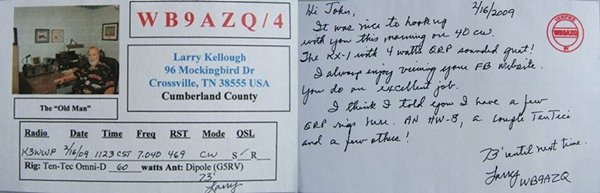 WB9AZQ/4
Larry Kellough
96 Mockingbird Dr
Crossville, TN 38555 USA
Cumberland County
The "Old Man"
Radio Date Time Freq RST Mode QSL
K3WWP 2/16/09 1123 CST 7.040 469 CW S R
Rig: Ten-Tec Omni-D 60 watts Ant: Dipole (G5RV)
73'
Larry
2/16/2009
VERIFIED
WB9AZQ
BY
Hi John,
It was nice to hook up
with you this morning on 40 cw.
The KX-1 with 4 watts QRP sounded great!
I always enjoy viewing your FB website.
You do an excellent job.
I think I told you I have a few
QRP rigs here. AN HW-8, a couple TenTecs
and a few others!
73' until next time.
Larry WB9AZQ